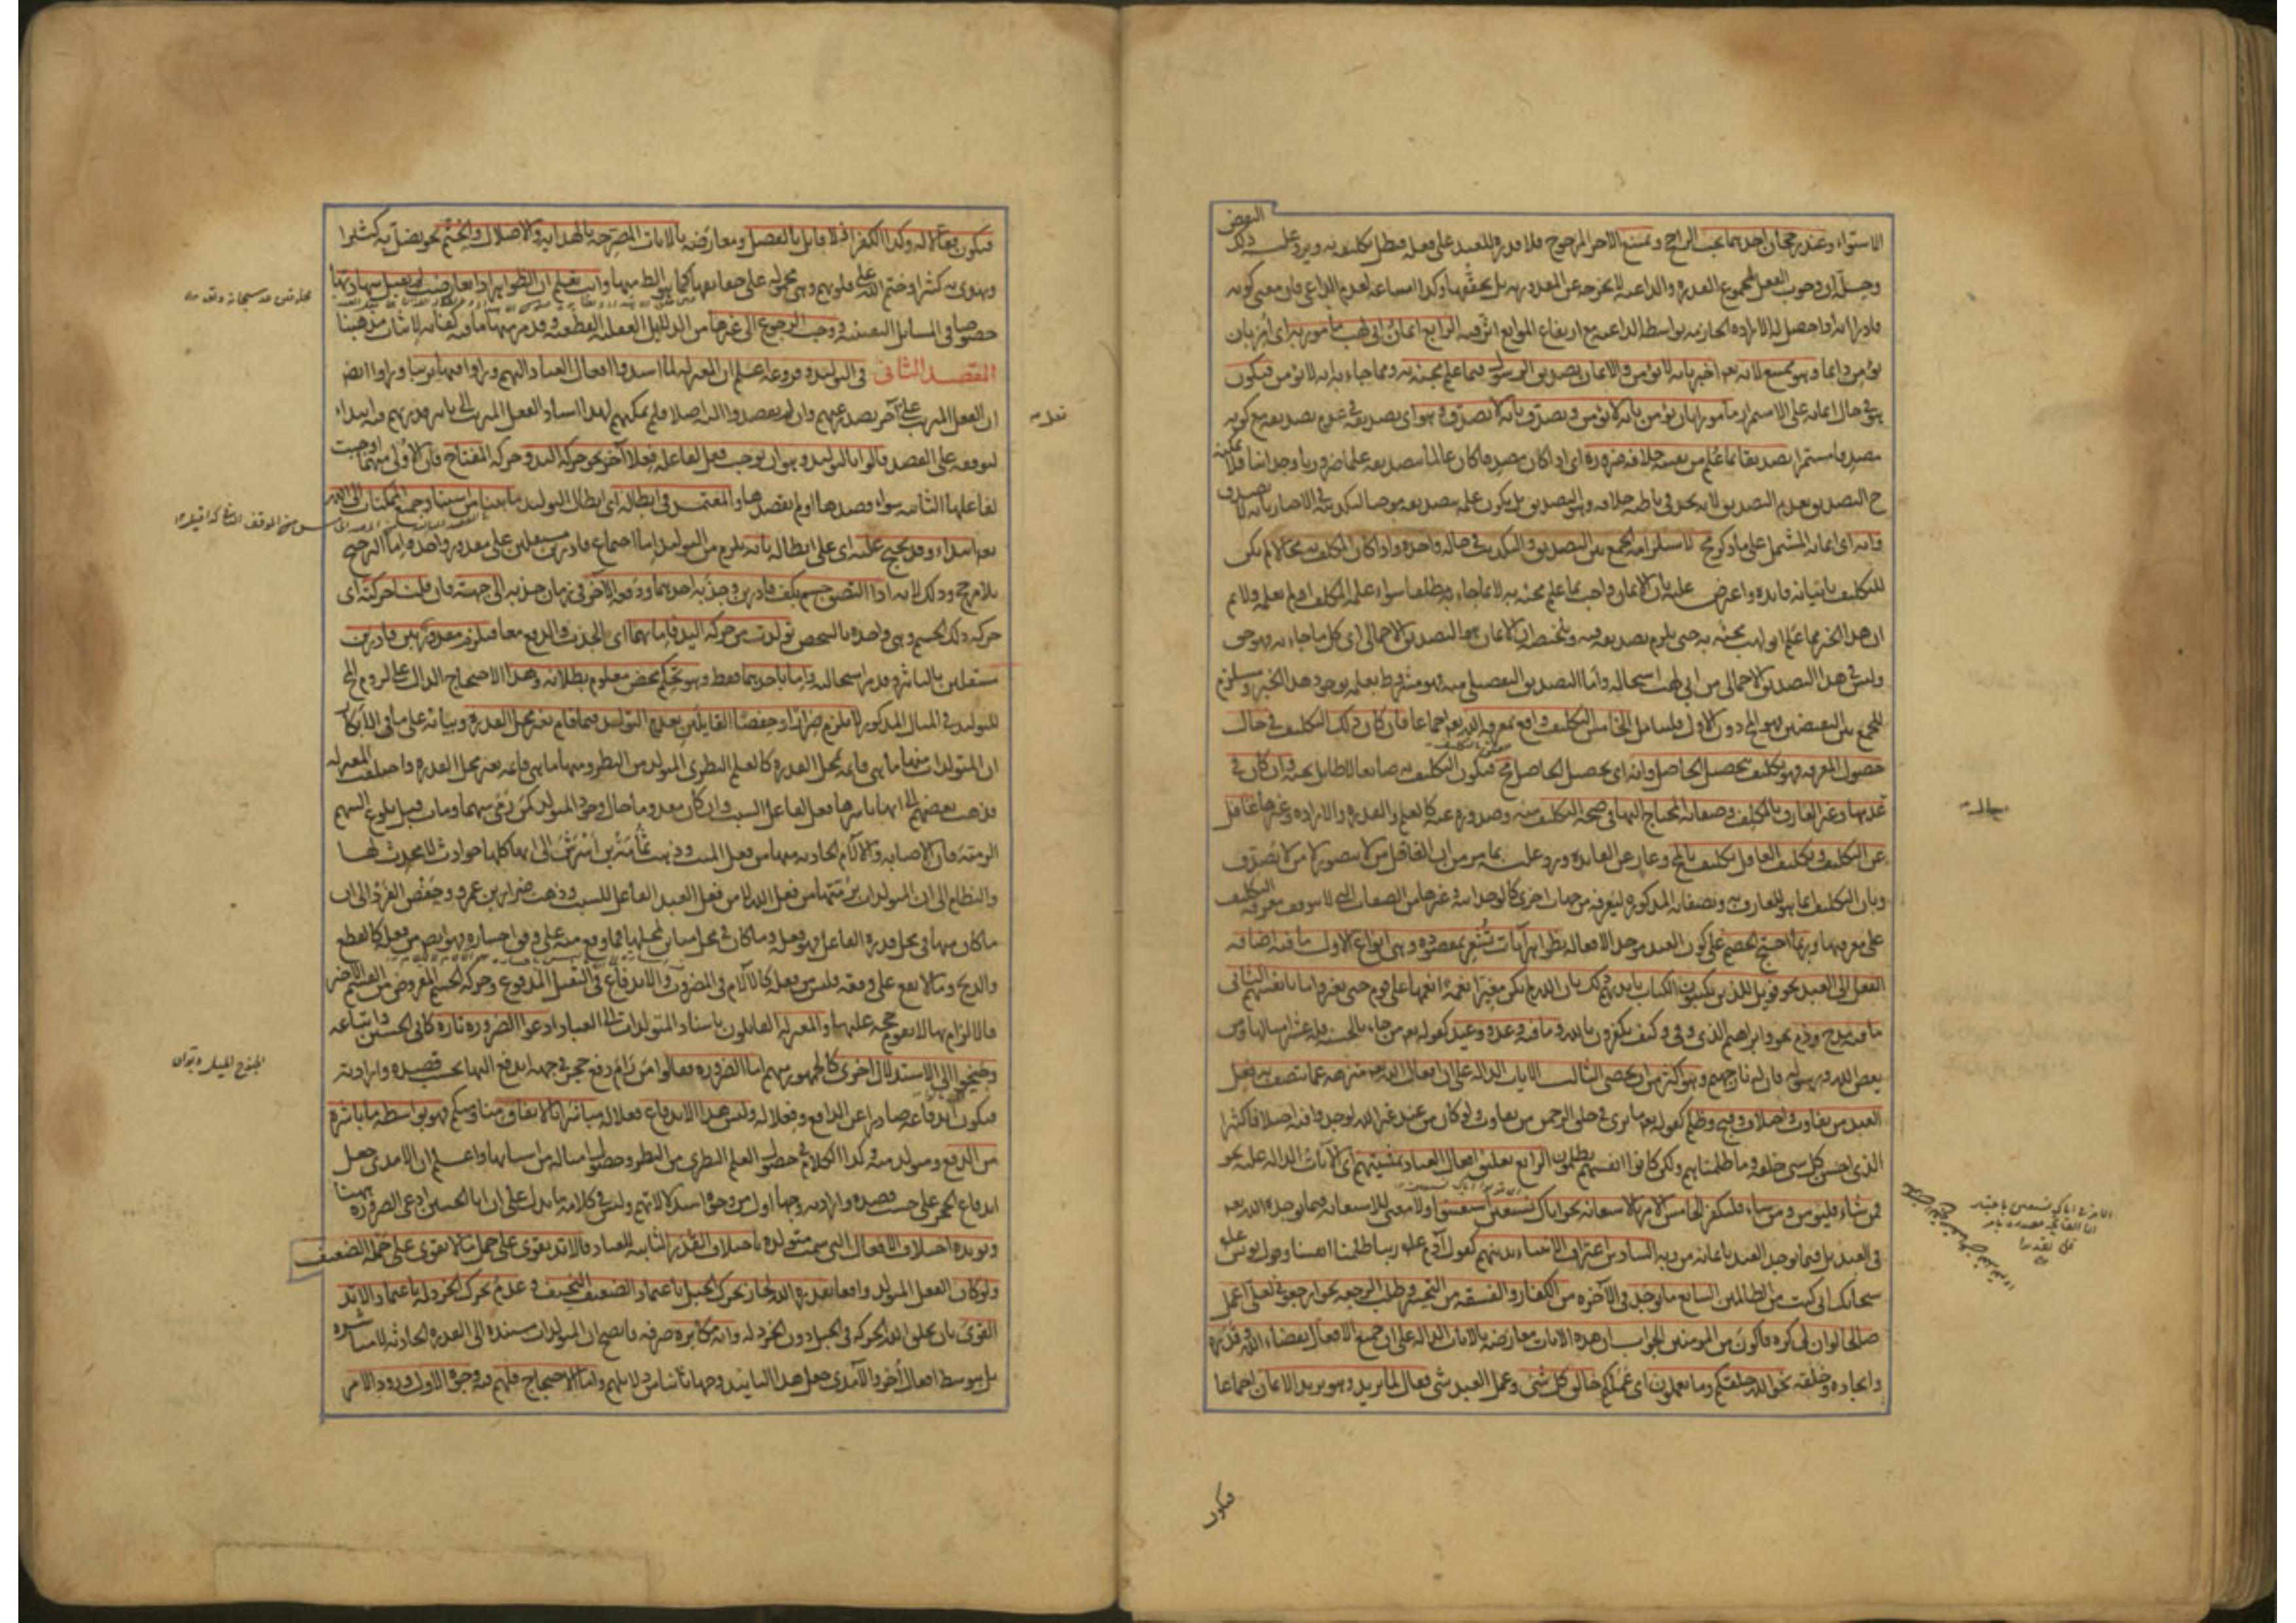 البعض
الاستواء وعند رجحان احدهما يجب الراجح ويمتنع الآخر المرجوح فلا قدرة للعبد على فعله فبطل تكليفه به ويرد عليه ذلك
وحله ان وجوب الفعل لمجموع القدرة والداعية لا يخرجه عن المقدورية بل يحققها وكذا امتناعه لعدم الداعي فان معنى كونه
قادرا انه اذا حصل له الارادة الجازمة بواسطة الداعية مع ارتفاع الموانع اثر فيه الرابع ايمان ابي لهب مأمور به اي امر بان
يؤمن دائما وهو ممتنع لانه تعالى اخبر بانه لا يؤمن والايمان تصديق الرسول فيما علم مجيئه به ومما جاء به انه لا يؤمن فيكون
هو في حال ايمانه على الاستمرار مأمورا بان يؤمن بانه لا يؤمن ويصدق بانه لا يصدق وهو اي تصديقه في عدم تصديقه مع كونه
مصدقا مستمرا تصديق بما علم من نفسه خلافه ضرورة اي اذا كان مصدقا كان عالما بتصديقه علما ضروريا وجدانيا فلا يمكنه
ح التصديق بعدم التصديق لانه يجد في باطنه خلافه وهو التصديق بل يكون علمه بتصديقه موجبا لتكذيبه في الاخبار بانه لا يصدق
وانه اي ايمانه المشتمل على ما ذكر مح لاستلزامه الجمع بين التصديق والتكذيب في حالة واحدة واذا كان المكلف به محالا لم يكن
للتكليف باتيانه فائدة واعترض عليه بان الايمان واجب بما علم مجيئه به لا بما جاء به مطلقا سواء علمه المكلف او لم يعلمه ولا نم
ان هذا الخبر مما علم ابو لهب مجيئه به حتى يلزم تصديقه فيه وتلخيصه ان الايمان هو التصديق الاجمالي اي كل ما جاء به فهو حق
وليس في هذا التصديق الاجمالي من ابي لهب استحالة وأما التصديق التفصيلي منه فهو مشروط بعلمه بوجود هذا الخبر ومستلزم
للجمع بين النقيضين فهو المح دون الاول فليتأمل الخامس التكليف واقع بمعرفة الله تعالى اجماعا فان كان ذلك التكليف في حال
حصول المعرفة فهو تكليف بتحصيل الحاصل وانه اي تحصيل الحاصل مح فيكون التكليف به ضائعا لا طائل تحته وان كان في
عدمها وغير العارف بالمكلف وصفاته المحتاج اليها في صحة التكليف منه وصدوره عنه كالعلم والقدرة والارادة وغيرها غافل
عن التكليف وتكليف الغافل تكليف بالمح وعار عن الفائدة ورد عليه بما مر من ان الغافل من لا يتصور لا من لا يصدق
وبان التكليف انما هو للعارف به وبصفاته المذكورة ليعرفه من جهات اخرى كالوحدانية وغيرها من الصفات التي لا يتوقف معرفة التكليف
على معرفتها وربما احتج الخصم على كون العبد موجدا لافعاله بظواهر آيات تشعر بمقصوده وهي انواع الاول ما فيه اضافة
الفعل الى العبد نحو فويل للذين يكتبون الكتاب بايديهم ذلك بان الله لم يك مغيرا نعمة انعمها على قوم حتى يغيروا ما بانفسهم الثاني
ما فيه مدح وذم نحو وابراهيم الذي وفى وكيف تكفرون بالله وما فيه وعد ووعيد كقوله تعالى من جاء بالحسنة فله عشر امثالها ومن
يعص الله ورسوله فان له نار جهنم وهو اكثر من ان يحصى الثالث الآيات الدالة على ان افعال الله تعالى منزهة عما يتصف به فعل
العبد من تفاوت واختلاف وقبح وظلم كقوله تعالى ما ترى في خلق الرحمن من تفاوت ولو كان من عند غير الله لوجدوا فيه اختلافا كثيرا
الذي احسن كل شي خلقه وما ظلمناهم ولكن كانوا انفسهم يظلمون الرابع تعليق افعال العباد بمشيئتهم اي الآيات الدالة عليه نحو
فمن شاء فليؤمن ومن شاء فليكفر الخامس الامر بالاستعانة نحو اياك نستعين استعينوا ولا معنى للاستعانة فيما يوجده الله تعالى
في العبد بل فيما يوجده العبد باعانة من ربه السادس اعتراف الانبياء بذنبهم كقول آدم عليه ربنا ظلمنا انفسنا وقول يونس عليه
سبحانك اني كنت من الظالمين السابع ما يوجد في الآخرة من الكفار والفسقة من التحسر وطلب الرجعة نحو ارجعون لعلي اعمل
صالحا لو ان لي كرة فاكون من المؤمنين الجواب ان هذه الآيات معارضة بالآيات الدالة على ان جميع الافعال بقضاء الله وقدره
وايجاده وخلقه نحو والله خلقكم وما تعملون اي عملكم خالق كل شئ وعمل العبد شئ فعال لما يريد وهو يريد الايمان اجماعا
فيكون
فيكون فعالا له وكذا الكفر اذ لا قائل بالفصل ومعارضة بالآيات المصرحة بالهداية والاضلال والختم نحو يضل به كثيرا
ويهدي به كثيرا وختم الله على قلوبهم وهي محمولة على حقائقها كما هو الظ منها وانت تعلم ان الظواهر اذا تعارضت لم تقبل شهادتها
خصوصا في المسائل اليقينية ووجب الرجوع الى غيرها من الدلايل العقلية القطعية وقد مر منها ما فيه كفاية لاثبات مذهبنا
المقصد الثاني في التوليد وفروعه اعلم ان المعتزلة لما اسندوا افعال العباد اليهم ورأوا فيها ترتبا ورأوا ايضا
ان الفعل المرتب على آخر يصدر عنهم وان لم يقصدوا اليه اصلا فلم يمكنهم لهذا اسناد الفعل المرتب الى تأثير قدرتهم فيه ابتداء
لتوقفه على القصد قالوا بالتوليد وهو ان يوجب فعل لفاعله فعلا آخر نحو حركة اليد وحركة المفتاح فان الاولى منهما اوجبت
لفاعلها الثانية سواء قصدها او لم يقصدها والمعتمد في ابطاله اي ابطال التوليد ما بينا من استناد جميع الممكنات الى الله
تعالى ابتداء وقد يحتج عليه اي على ابطاله بانه يلزم من التوليد اما اجتماع قادرين مستقلين على مقدور واحد واما الترجيح
بلا مرجح وذلك لانه اذا التصق جسم بكف قادرين وجذبه احدهما ودفعه الآخر في زمان جذبه الى جهته فان قلنا حركته اي
حركة ذلك الجسم وهي واحدة بالشخص تولدت من حركة اليد فاما بهما اي الجذب والدفع معا فيلزم مقدور بين قادرين
مستقلين بالتأثير وقد مر استحالته واما باحدهما فقط وهو تحكم محض معلوم بطلانه وهذا الاحتجاج الدال على لزوم المح
للتوليد في المثال المذكور لا يلزم ضرارا وحفصا القائلين بعدم التوليد فيما قام بغير محل القدرة وبيانه على ما في الابكار
ان المتولدات منها ما هي قائمة بمحل القدرة كالعلم النظري المتولد من النظر ومنها ما هي قائمة بغير محل القدرة واختلفت المعتزلة
فذهب بعضهم الى انها باسرها فعل لفاعل السبب وان كان معدوما حال وجود المتولد كمن رمى سهما ومات قبل بلوغ السهم
الرمية فان الاصابة والآلام الحادثة منها من فعل الميت وذهب ثمامة بن اشرس الى انها كلها حوادث لا محدث لها
والنظام الى ان المتولدات برمتها من فعل الله لا من فعل العبد الفاعل للسبب وذهب ضرار بن عمرو وحفص الفرد الى ان
ما كان منها في محل قدرة الفاعل فهو فعله وما كان في محل مباين لمحلها فما وقع منه على وفق اختياره فهو ايضا من فعله كالقطع
والذبح وما لا يقع على وفقه فليس من فعله كالآلام في المضروب والاندفاع في الثقيل المدفوع وحركة الجسم المفروض من القسم الاخير
فالالزام بها لا يقوم حجة عليهما والمعتزلة القائلون باسناد المتولدات الى العباد ادعوا الضرورة تارة كابي الحسين واتباعه
وجنحوا الى الاستدلال اخرى كالجمهور منهم اما الضرورة فقالوا من رام دفع حجر في جهة اندفع اليها بحسب قصده وارادته
فيكون اندفاعه صادرا عن الدافع وفعلا له وليس هذا الاندفاع فعلا له مباشرا بالاتفاق منا ومنكم فهو بواسطة ما باشره
من الدفع ومتولد منه وكذا الكلام في حصول العلم النظري من النظر وحصول امثاله من اسبابها واعلم ان الآمدي جعل
اندفاع الحجر على حسب قصده وارادته وجها اول من وجوه استدلالاتهم وليس في كلامه ما يدل على ان ابا الحسين ادعى الضرورة ههنا
ويؤيده اختلاف الافعال التي سميت متولدة باختلاف القدر الثابتة للعباد فالايد يقوى على حمل ما لا يقوى على حمله الضعيف
ولو كان الفعل المتولد واقعا بقدرة الله لجاز تحرك الجبل باعتماد الضعيف النحيف وعدم تحرك الخردلة باعتماد الايد
القوي بان يخلق الله الحركة في الجبل دون الخردلة وانه مكابرة صرفة فاتضح ان المتولدات مستندة الى القدرة الحادثة لا مباشرة
بل بتوسط افعال أخر والآمدي جعل هذا التأييد وجها ثانيا من دلائلهم واما الاحتجاج فلهم فيه وجوه الاول ورود الامر